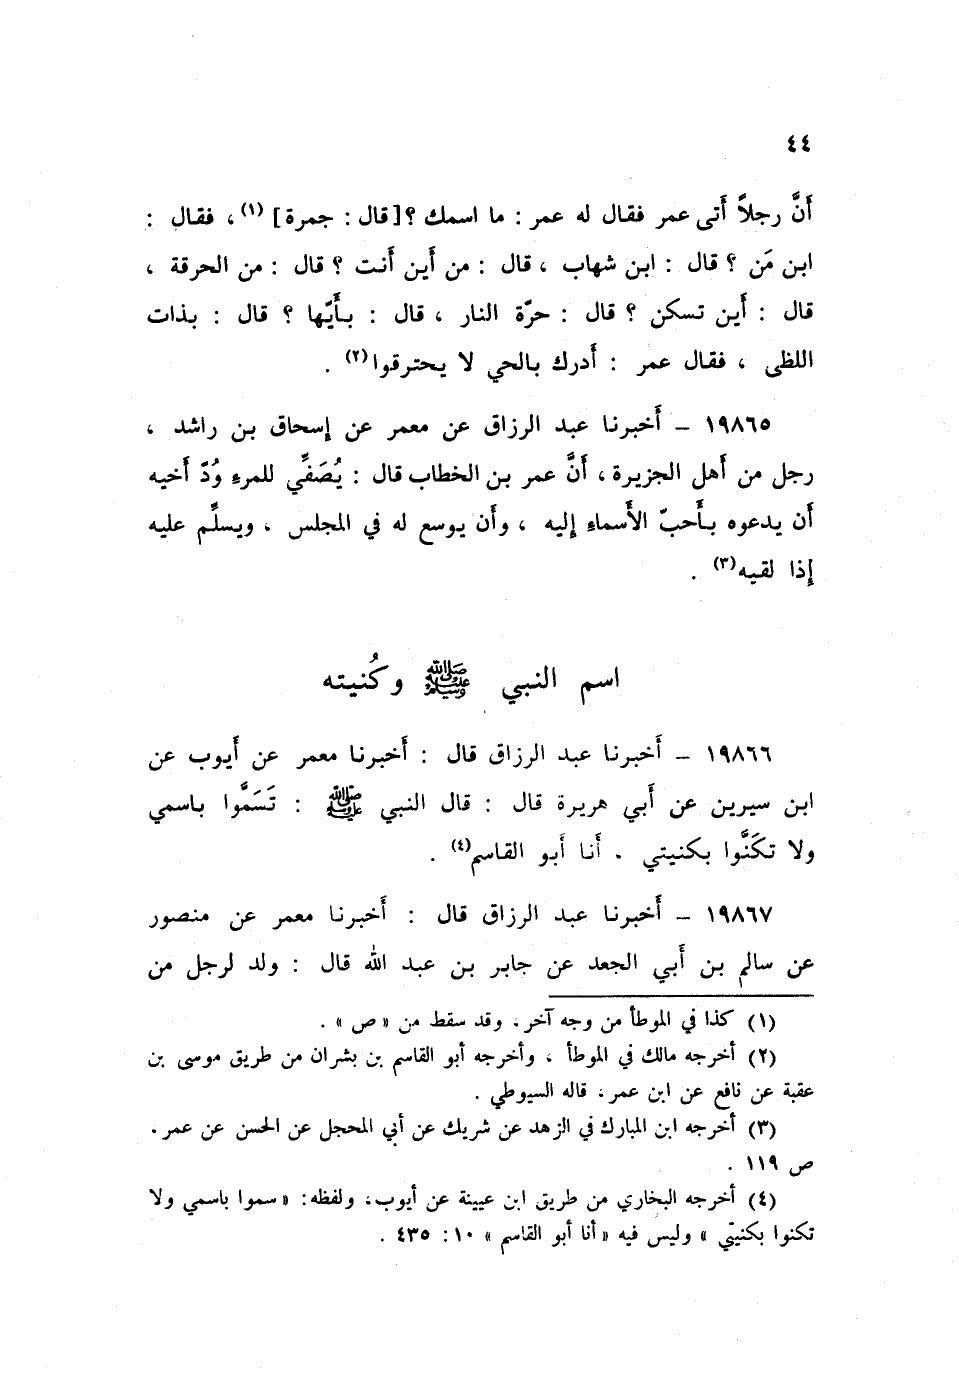 ٤٤
أَنَّ رجلاً أَتى عمر فقال له عمر : ما اسمك ؟ [قال : جمرة] (١)، فقال :
ابن مَن ؟ قال : ابن شهاب ، قال : من أَين أَنت ؟ قال : من الحرقة ،
قال : أَين تسكن ؟ قال : حرّة النار ، قال : بأَيّها ؟ قال : بذات
اللظى ، فقال عمر : أَدرك بالحي لا يحترقوا(٢) .
١٩٨٦٥ - أَخبرنا عبد الرزاق عن معمر عن إسحاق بن راشد ،
رجل من أَهل الجزيرة ، أَنَّ عمر بن الخطاب قال : يُصَفِّي للمرءِ وُدّ أَخيه
أَن يدعوه بأَحبّ الأَسماءِ إليه ، وأَن يوسع له في المجلس ، ويسلِّم عليه
إذا لقيه(٣) .
اسم النبي ﷺ وكُنيته
١٩٨٦٦ - أَخبرنا عبد الرزاق قال : أَخبرنا معمر عن أَيوب عن
ابن سيرين عن أَبي هريرة قال : قال النبي ﷺ : تَسَمَّوا باسمي
ولا تكَنَّوا بكنيتي . أَنا أَبو القاسم(٤) .
١٩٨٦٧ - أَخبرنا عبد الرزاق قال : أَخبرنا معمر عن منصور
عن سالم بن أَبي الجعد عن جابر بن عبد الله قال : ولد لرجل من
(١) كذا في الموطأ من وجه آخر ، وقد سقط من « ص » .
(٢) أخرجه مالك في الموطأ ، وأخرجه أبو القاسم بن بشران من طريق موسى بن
عقبة عن نافع عن ابن عمر ، قاله السيوطي .
(٣) أخرجه ابن المبارك في الزهد عن شريك عن أبي المحجل عن الحسن عن عمر .
ص ١١٩ .
(٤) أخرجه البخاري من طريق ابن عيينة عن أيوب ، ولفظه : « سموا باسمي ولا
تكنوا بكنيتي » وليس فيه « أنا أبو القاسم » ١٠ : ٤٣٥ .